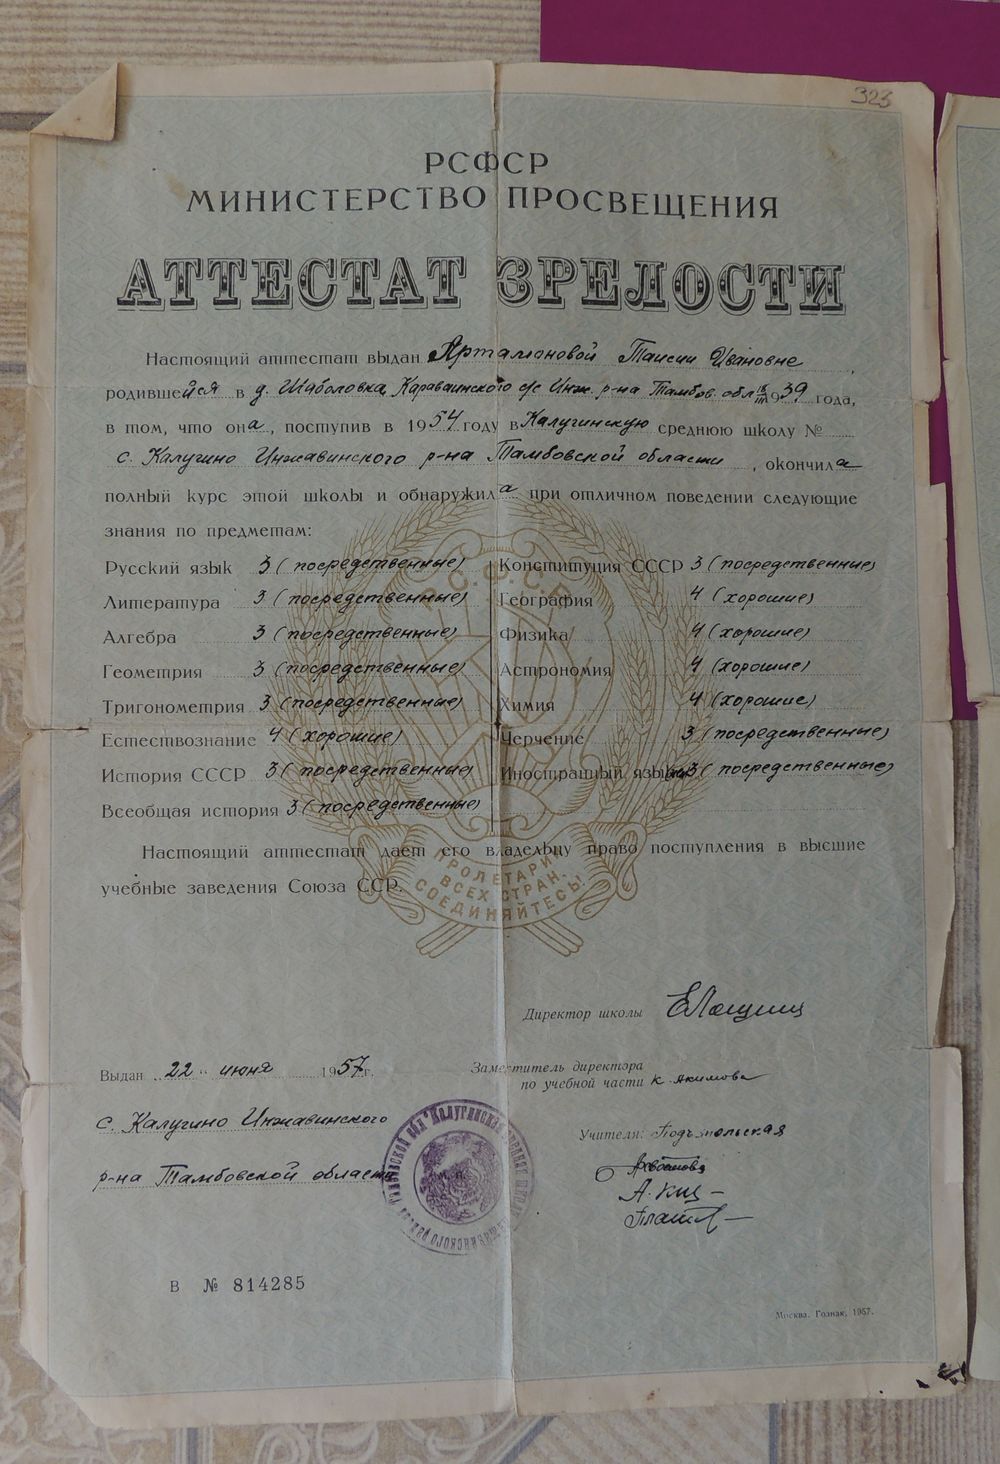 323
РСФСР
МИНИСТЕРСТВО ПРОСВЕЩЕНИЯ
АТТЕСТАТ ЗРЕЛОСТИ
Настоящий аттестат выдан Артамоновой Таисии Ивановне,
родившейся в д. Шаболовка, Караваинского с/с Инж. р-на Тамбов. обл 1939 года,
в том, что она, поступив в 1954 году в Калугинскую среднюю школу №
с. Калугино Инжавинского р-на Тамбовской области, окончила
полный курс этой школы и обнаружила при отличном поведении следующие
знания по предметам:
Русский язык 3 (посредственные) Конституция СССР 3 (посредственние)
Литература 3 (посредственные) География 4 (хорошие)
Алгебра 3 (посредственные) Физика 4 (хорошие)
Геометрия 3 (посредственные) Астрономия 4 (хорошие)
Тригонометрия 3 (посредственные) Химия 4 (хорошие)
Естествознание 4 (хорошие) Черчение 3 (посредственные)
История СССР 3 (посредственные) Иностранный язык 3 (посредственные)
Всеобщая история 3 (посредственные)
Настоящий аттестат дает его владельцу право поступления в высшие
учебные заведения Союза ССР.
Р.С.Ф.С.Р.
ПРОЛЕТАРИИ
ВСЕХ СТРАН,
СОЕДИНЯЙТЕСЬ!
Директор школы
Выдан „22" июня 1957 г.
Заместитель директора
по учебной части К. Акимова
с. Калугино Инжавинского
р-на Тамбовской области
Учителя:
В № 814285
Москва. Гознак, 1957.